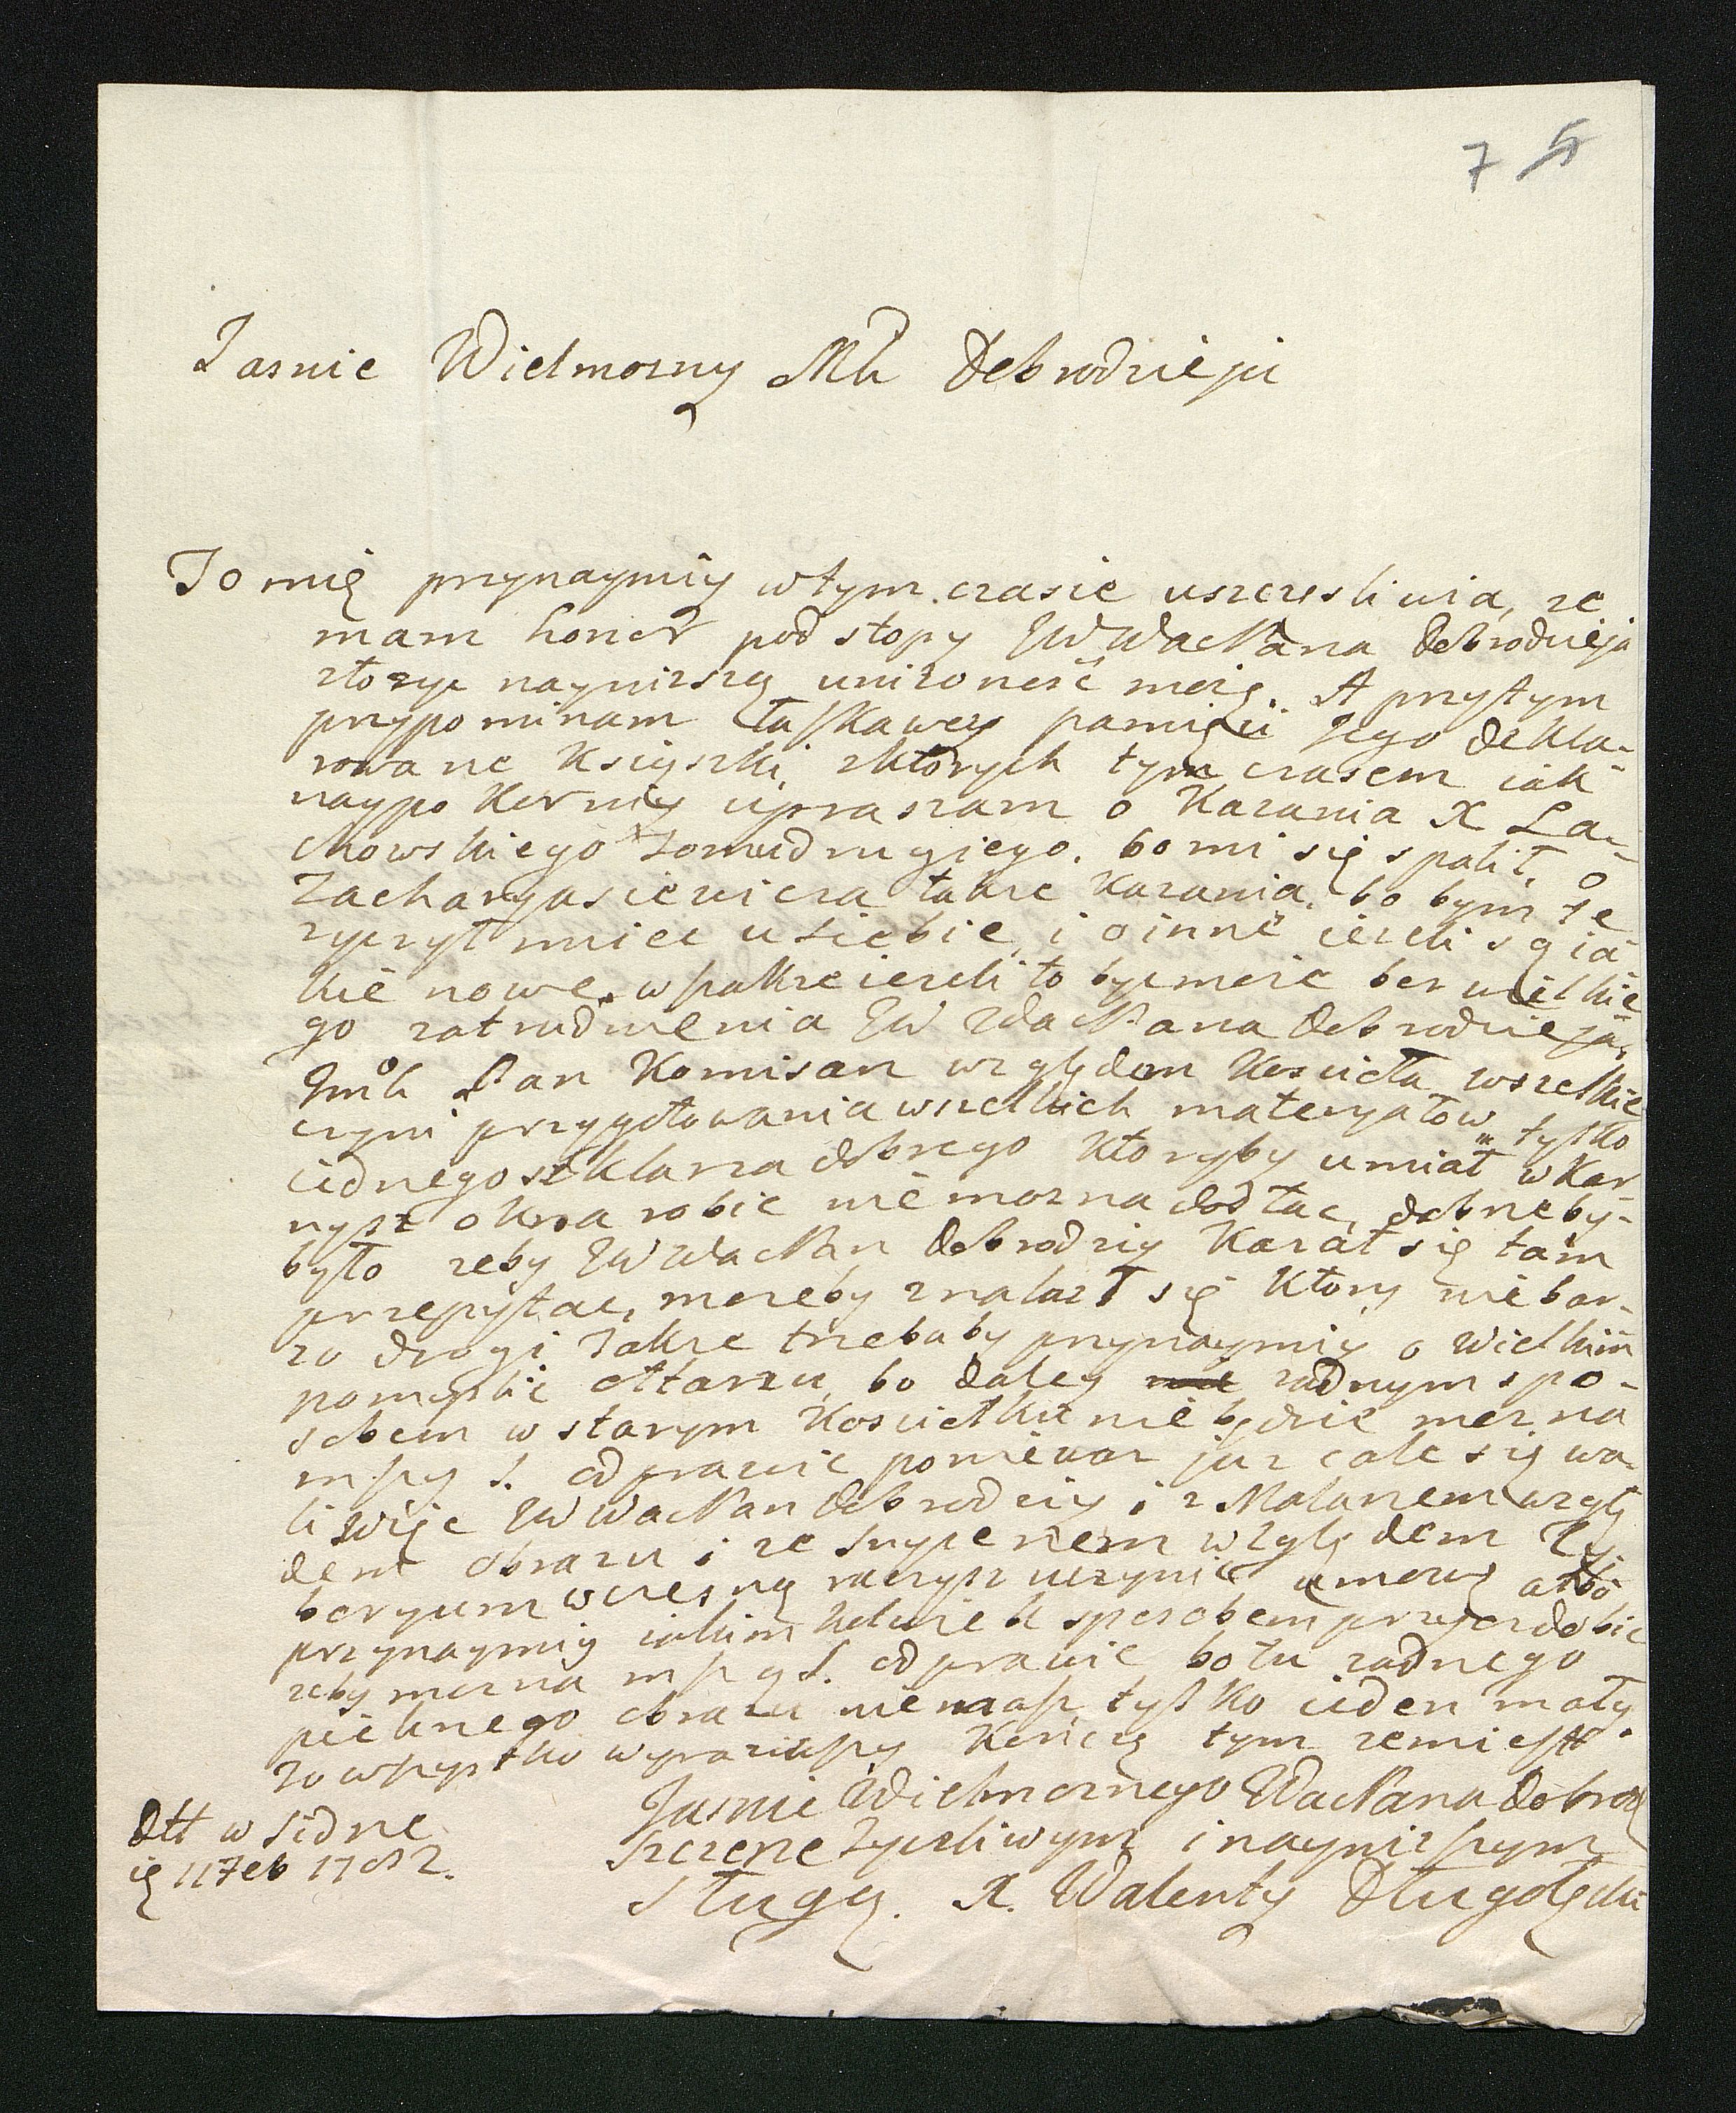 7 5
Jasnie Wielmozny Mci Dobrodzieju
To mię przynaymiy w tym czasie uszczesliwia, ze
mam honor pod stopy JW WacPana Dobrodzieja
złozyc nayniższą unizoność moię. A przytym
przypominam łaskawey pamięci Jego dekla-
rowane Ksiąszki, z ktorych tym czasem iak
naypokorniy upraszam o Kazania X La-
chowskiego Tomu drugiego. bo mi się spalił, o
Zacharyasiewicza takze Kazania, bo bym ze
zyczył miec u siebie, i o inne iezeli są ia
kie nowe. wszakze iezeli to byc moze bez wielkie
go zatrudnienia JW WacPana Dobrodzieja.
Jmć Pan Komisarz względem Koscioła wszelkie
czyni przygotowania wszelkich materyałow, tylko
iednego szklarza dobrego ktoryby umiał w Kar-
nysz okna robic nie mozna dostac, dobrze by-
było zeby JW WacPan Dobrodziy Kazał się tam
przepytac, mozeby znalazł się ktory nie bar-
zo drogi Takze trzebaby przynaymiy o wielkim
pomyslic Ołtarzu, bo daley zadnym spo-
sobem w starym Kosciołku nie będzie mozna
mszy S. odprawic poniewaz juz cale się wa-
li więc JW WacPan Dobrodziy i z Malarzem wzglę
dem Obrazu i ze Snycerzem względem Cy
boryum wczesną raczysz uczynic umowę albo
przynaymiy iakimkolwiek sposobem przyozdobic
zeby mozna mszą S. odprawic bo tu zadnego
pieknego obrazu nie masz tylko ieden mały.
To wszystko wyraziwszy Kończę tym zem iest
Jasnie Wielmoznego WacPana Dobrod
Szczerze Zyczliwym i nayniższym
Sługą. X. Walenty Długołęcki
Dtt w Sidne
ię 11 Feb 1782.